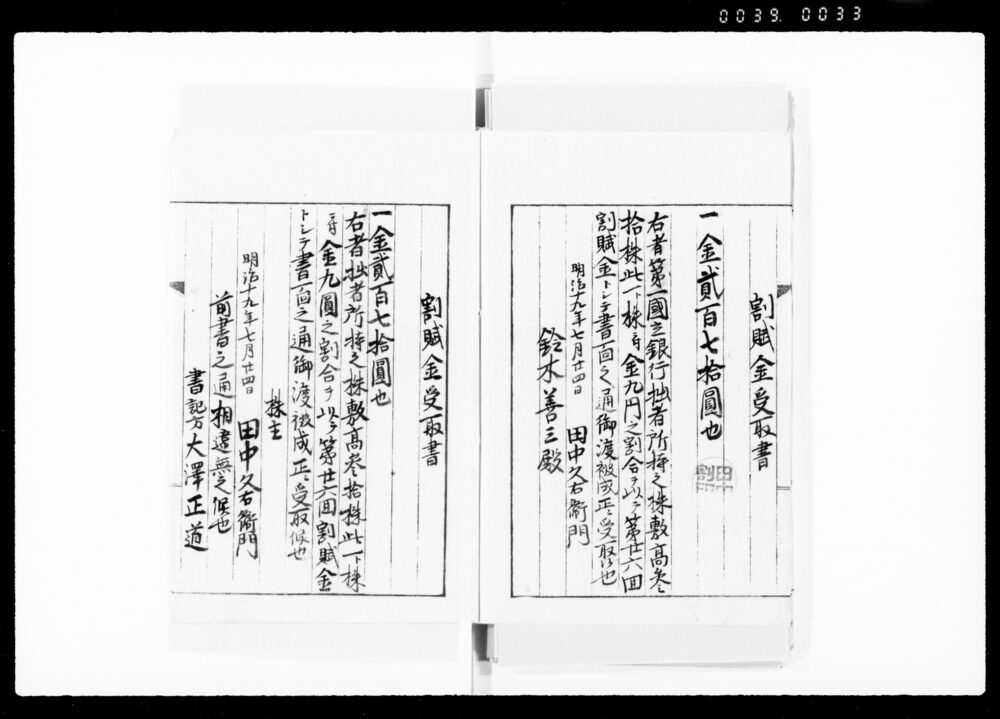 0039. 0033
割賦金受取書
一金貳百七拾圓也
右者第一國立銀行拙者所持之株敷高叁
拾株此一ト株ニ付金九円之割合ヲ以テ第廿六回
割賦金トシテ書面之通御渡被成正ニ受取候也
明治十九年七月廿四日
田中久右衛門
鈴木善三殿
割賦金受取書
一金貳百七拾圓也
右者拙者所持之株敷高叁拾株此一ト株
ニ付金九圓之割合ヲ以テ第廿六回割賦金
トシテ書面之通御渡被成正ニ受取候也
株主
明治十九年七月廿四日
田中久右衛門
前書之通相違無之候也
書記方大澤正道